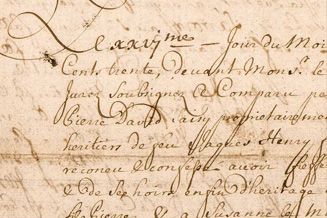 Le xxvj me Jour du Moi
Cent trente, devant Mons.r le
Jurez Soubsignez a Comparu pe
Pierre David Lainy proprietaire me
heritiers de feu Jaques Henry
reconeu & confesse avoir fieffe
& de Ses hoirs enfin d'heritage
Pierre & a Susanne les M